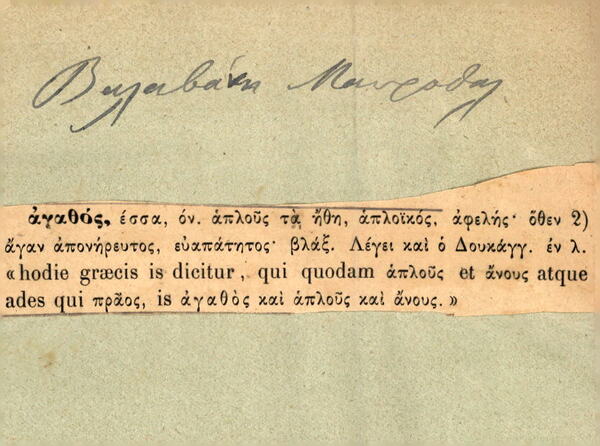 Βαλαβάνη Μαυροθαλ
ἀγαθός, έσσα, όν. ἁπλοῦς τὰ ἤθη, ἁπλοϊκός, ἀφελής· ὅθεν 2)
ἄγαν ἀπονήρευτος, εὐαπάτητος· βλάξ. Λέγει καὶ ὁ Δουκάγγ. ἐν λ.
«hodie græcis is dicitur, qui quodam ἁπλοῦς et ἄνους atque
ades qui πρᾶος, is ἀγαθὸς καὶ ἁπλοῦς καὶ ἄνους.»